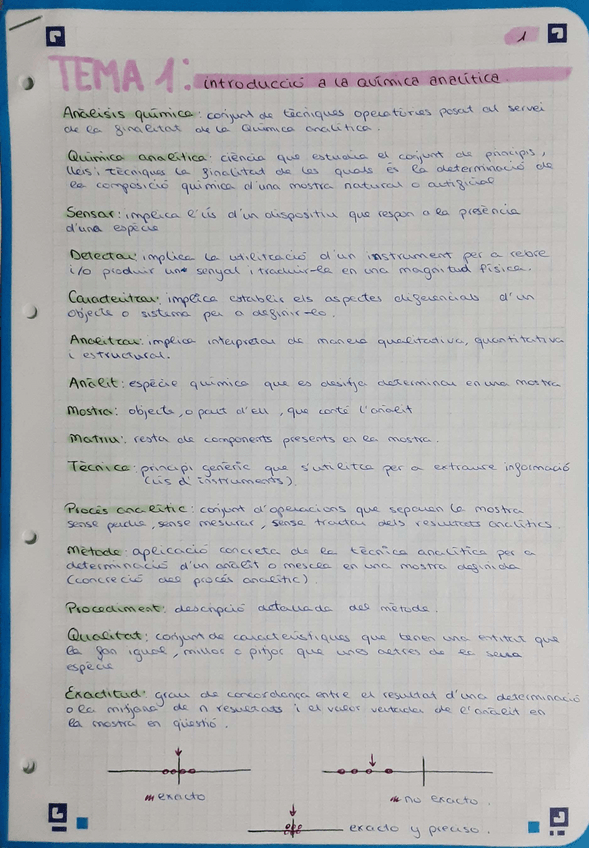 1
TEMA 1: introducció a la química analítica.
Anàlisis química: conjunt de tècniques operatòries posat al servei
de la finalitat de la Química analítica.
Química analítica: ciència que estudia el conjunt de principis,
lleis i tècniques la finalitat de les quals és la determinació de
la composició química d'una mostra natural o artificial
Sensar: implica l'ús d'un dispositiu que respon a la presència
d'una espècie
Detectar: implica la utilització d'un instrument per a rebre
i/o produir una senyal i traduir-la en una magnitud física.
Caracteritzar: implica establir els aspectes diferencials d'un
objecte o sistema per a definir-lo.
Analitzar: implica interpretar de manera qualitativa, quantitativa
i estructural.
Anàlit: espècie química que es desitja determinar en una mostra
Mostra: objecte, o part d'ell, que conté l'anàlit
Matriu: resta de components presents en la mostra.
Tècnica: principi genèric que s'utilitza per a extraure informació
(ús d'instruments).
Procés analític: conjunt d'operacions que separen la mostra
sense , sense mesurar, sense tractar dels resultats analítics.
Mètode: aplicació concreta de la tècnica analítica per a
determinació d'un anàlit o mescla en una mostra definida
(concreció del procés analític).
Procediment: descripció detallada del mètode.
Qualitat: conjunt de característiques que tenen una entitat que
la fan igual, millor o pitjor que unes altres de la seua
espècie
Exactitud: grau de concordança entre el resultat d'una determinació
o la mitjana de n resultats i el valor vertader de l'anàlit en
la mostra en qüestió.
exacto
no exacto.
exacto y preciso.